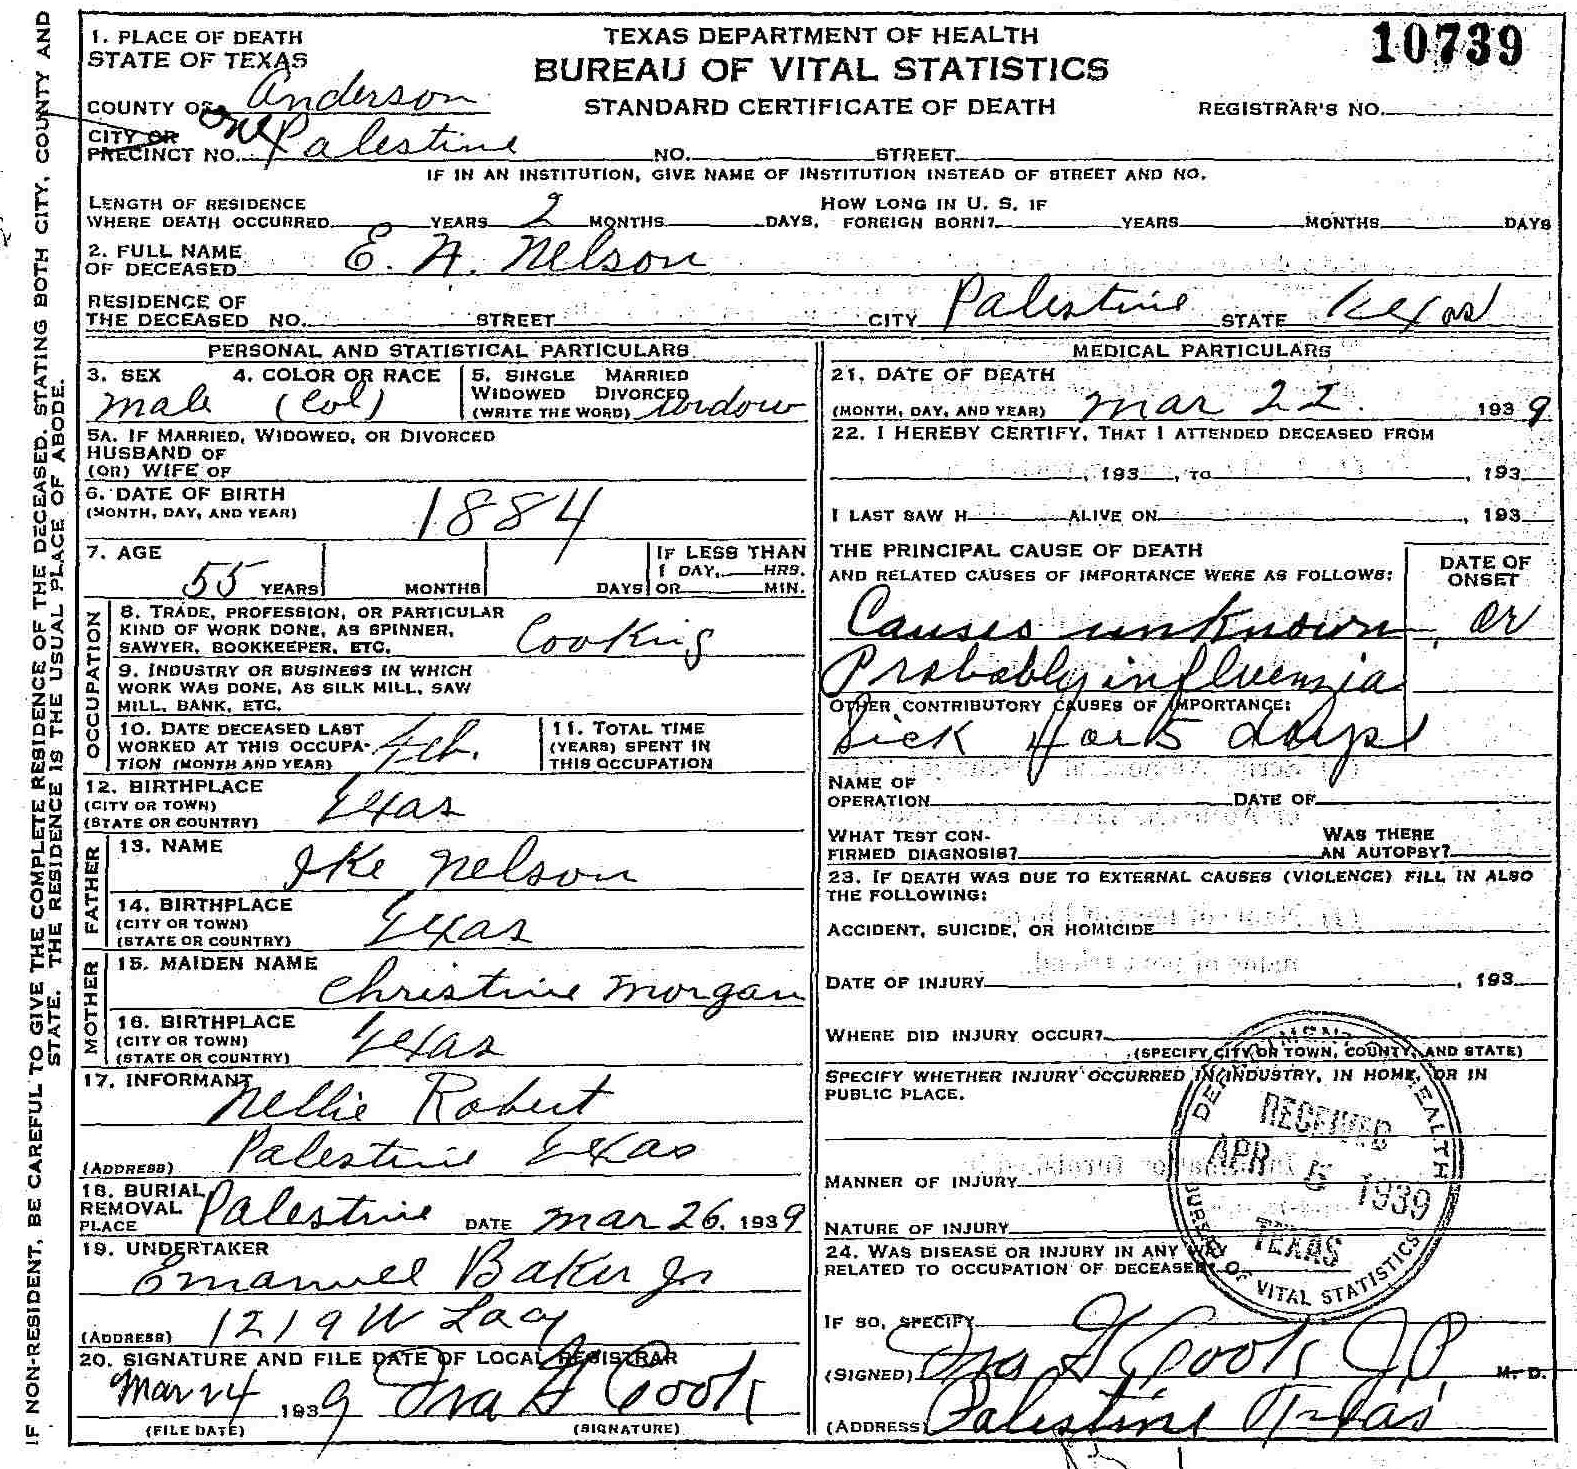 IF NON-RESIDENT, BE CAREFUL TO GIVE THE COMPLETE RESIDENCE OF THE DECEASED. STATING BOTH CITY, COUNTY AND
STATE. THE RESIDENCE IS THE USUAL PLACE OF ABODE.
TEXAS DEPARTMENT OF HEALTH
BUREAU OF VITAL STATISTICS
STANDARD CERTIFICATE OF DEATH
10739
REGISTRAR'S NO.
1. PLACE OF DEATH
STATE OF TEXAS
COUNTY OF Anderson
CITY OR
PRECINCT NO. one Palestine NO. STREET
IF IN AN INSTITUTION, GIVE NAME OF INSTITUTION INSTEAD OF STREET AND NO.
LENGTH OF RESIDENCE
WHERE DEATH OCCURRED YEARS 2 MONTHS DAYS.
HOW LONG IN U. S. IF
FOREIGN BORN? YEARS MONTHS DAYS
2. FULL NAME
OF DECEASED E. H. Nelson
RESIDENCE OF
THE DECEASED NO. STREET CITY Palestine STATE Texas
PERSONAL AND STATISTICAL PARTICULARS
3. SEX 4. COLOR OR RACE
male (Col)
5. SINGLE MARRIED
WIDOWED DIVORCED
(WRITE THE WORD) Widow
5A. IF MARRIED, WIDOWED, OR DIVORCED
HUSBAND OF
(OR) WIFE OF
6. DATE OF BIRTH
(MONTH, DAY, AND YEAR) 1884
7. AGE
55 YEARS MONTHS DAYS
IF LESS THAN
1 DAY, HRS.
OR MIN.
OCCUPATION
8. TRADE, PROFESSION, OR PARTICULAR
KIND OF WORK DONE, AS SPINNER,
SAWYER, BOOKKEEPER, ETC. Cooking
9. INDUSTRY OR BUSINESS IN WHICH
WORK WAS DONE, AS SILK MILL, SAW
MILL, BANK, ETC.
10. DATE DECEASED LAST
WORKED AT THIS OCCUPA-
TION (MONTH AND YEAR) Feb.
11. TOTAL TIME
(YEARS) SPENT IN
THIS OCCUPATION
12. BIRTHPLACE
(CITY OR TOWN)
(STATE OR COUNTRY) Texas
FATHER
13. NAME Ike Nelson
14. BIRTHPLACE
(CITY OR TOWN)
(STATE OR COUNTRY) Texas
MOTHER
15. MAIDEN NAME Christine Morgan
16. BIRTHPLACE
(CITY OR TOWN)
(STATE OR COUNTRY) Texas
17. INFORMANT Nellie Robert
(ADDRESS) Palestine Texas
18. BURIAL
REMOVAL
PLACE Palestine DATE Mar 26, 1939
19. UNDERTAKER
Emanuel Baker Jr
(ADDRESS) 1219 W Lacy
20. SIGNATURE AND FILE DATE OF LOCAL REGISTRAR
Mar 24 1939 Ira G Cook
(FILE DATE) (SIGNATURE)
MEDICAL PARTICULARS
21. DATE OF DEATH
(MONTH, DAY, AND YEAR) Mar 22. 1939
22. I HEREBY CERTIFY, THAT I ATTENDED DECEASED FROM
, 193 , TO , 193
I LAST SAW H ALIVE ON , 193
THE PRINCIPAL CAUSE OF DEATH
AND RELATED CAUSES OF IMPORTANCE WERE AS FOLLOWS:
DATE OF
ONSET
Causes unknown, or
Probably influenzia
OTHER CONTRIBUTORY CAUSES OF IMPORTANCE:
Sick 4 or 5 days
NAME OF
OPERATION DATE OF
WHAT TEST CON-
FIRMED DIAGNOSIS?
WAS THERE
AN AUTOPSY?
23. IF DEATH WAS DUE TO EXTERNAL CAUSES (VIOLENCE) FILL IN ALSO
THE FOLLOWING:
ACCIDENT, SUICIDE, OR HOMICIDE
DATE OF INJURY , 193
WHERE DID INJURY OCCUR?
(SPECIFY CITY OR TOWN, COUNTY, AND STATE)
SPECIFY WHETHER INJURY OCCURRED IN INDUSTRY, IN HOME, OR IN
PUBLIC PLACE.
MANNER OF INJURY
NATURE OF INJURY
24. WAS DISEASE OR INJURY IN ANY WAY
RELATED TO OCCUPATION OF DECEASED?
IF SO, SPECIFY
(SIGNED) Ira G Cook JP M. D.
(ADDRESS) Palestine Texas
DEPARTMENT OF HEALTH
RECEIVED
APR 5 1939
TEXAS
BUREAU OF VITAL STATISTICS